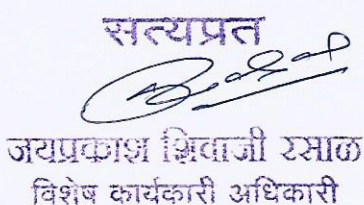 सत्यप्रत
जयप्रकाश शिवाजी रसाळ
विशेष कार्यकारी अधिकारी